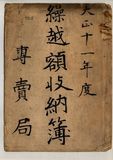 大正十一年度
繰越額收納簿
專賣局